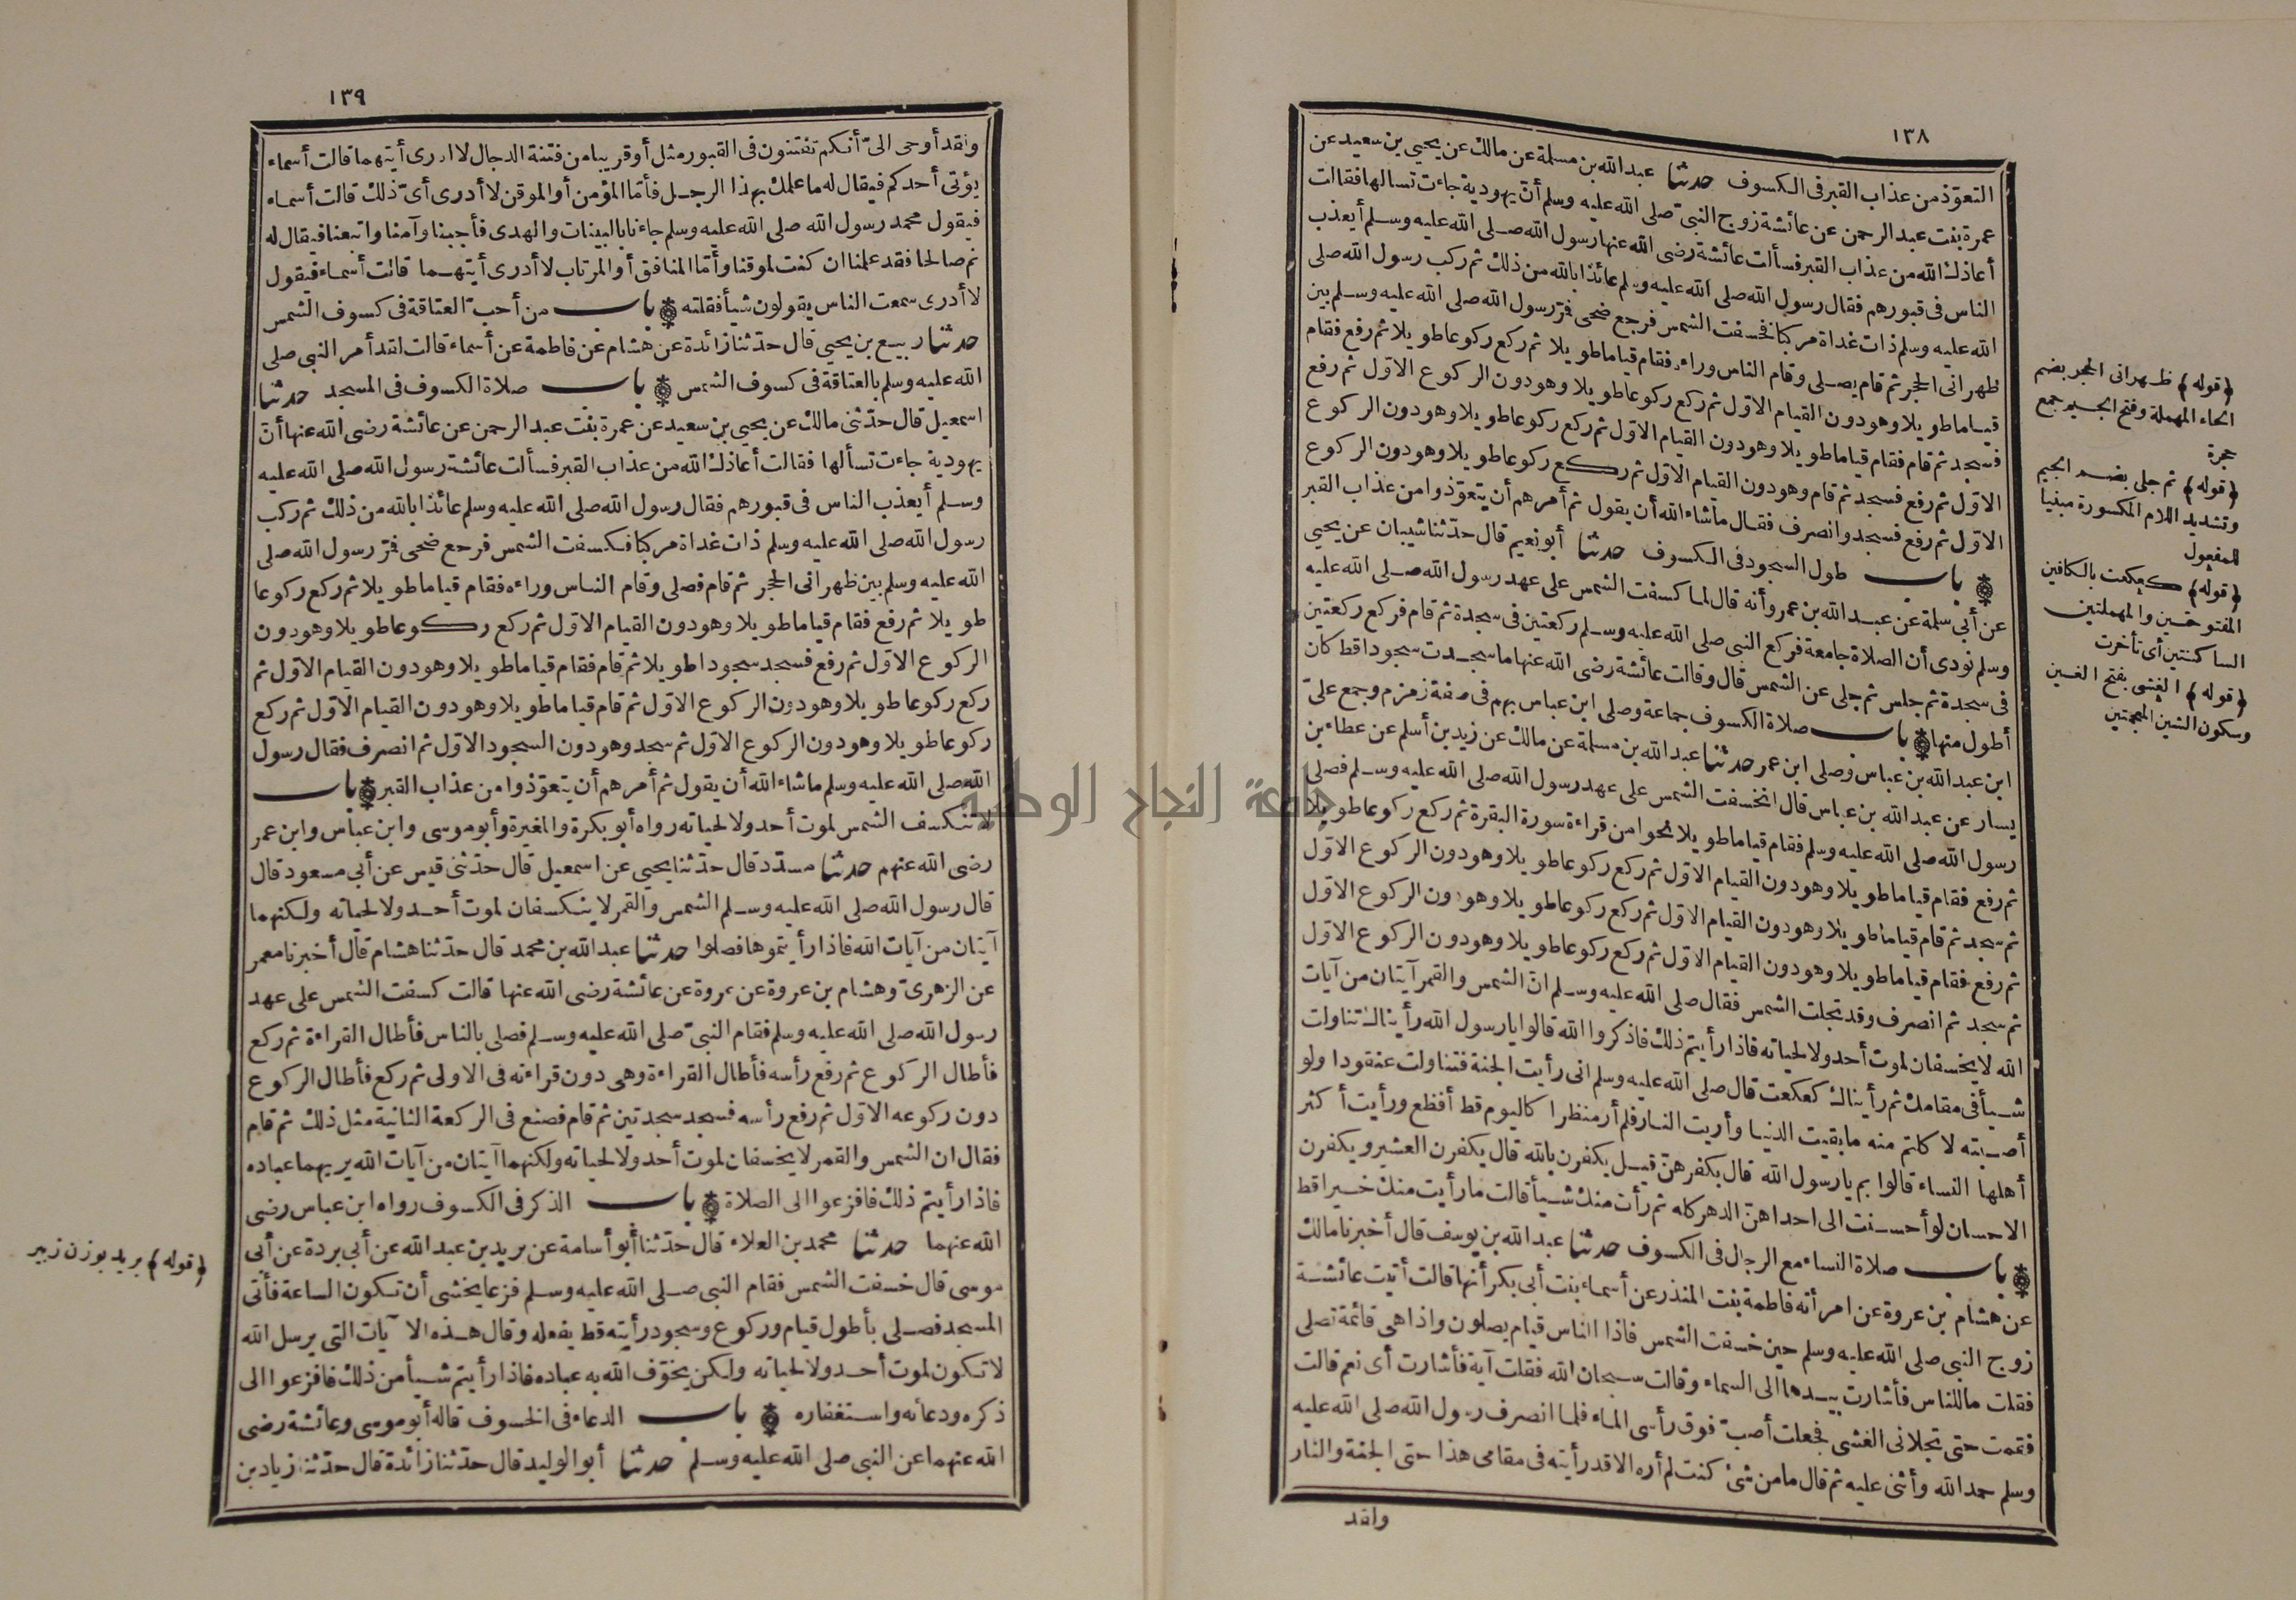 ١٣٨
التعوّذ من عذاب القبر فى الكسوف حدثنا عبد الله بن مسلمة عن مالك عن يحيى بن سعيد عن
عمرة بنت عبد الرحمن عن عائشة زوج النبىّ صلى الله عليه وسلم أنّ يهودية جاءت تسألها فقالت
أعاذك الله من عذاب القبر فسألت عائشة رضى الله عنها رسول الله صلى الله عليه وسلم أيعذب
الناس فى قبورهم فقال رسول الله صلى الله عليه وسلم عائذا بالله من ذلك ثم ركب رسول الله صلى
الله عليه وسلم ذات غداة مركبا فخسفت الشمس فرجع ضحى فمرّ رسول الله صلى الله عليه وسلم بين
ظهرانى الحجر ثم قام يصلى وقام الناس وراءه فقام قياما طويلا ثم ركع ركوعا طويلا ثم رفع فقام
قياما طويلا وهو دون القيام الاوّل ثم ركع ركوعا طويلا وهو دون الركوع الاوّل ثم رفع
فسجد ثم قام فقام قياما طويلا وهو دون القيام الاوّل ثم ركع ركوعا طويلا وهو دون الركوع
الاوّل ثم رفع فسجد ثم قام وهو دون القيام الاوّل ثم ركع ركوعا طويلا وهو دون الركوع
الاوّل ثم رفع فسجد وانصرف فقال ماشاء الله أن يقول ثم أمرهم أن يتعوّذوا من عذاب القبر
باب طول السجود فى الكسوف حدثنا أبو نعيم قال حدّثنا شيبان عن يحيى
عن أبى سلمة عن عبد الله بن عمرو أنه قال لما كسفت الشمس على عهد رسول الله صلى الله عليه
وسلم نودى أن الصلاة جامعة فركع النبى صلى الله عليه وسلم ركعتين فى سجدة ثم قام فركع ركعتين
فى سجدة ثم جلس ثم جلى عن الشمس قال وقالت عائشة رضى الله عنها ما سجدت سجودا قط كان
أطول منها باب صلاة الكسوف جماعة وصلى ابن عباس بهم فى صفة زمزم وجمع علىّ
ابن عبد الله بن عباس وصلى ابن عمر حدثنا عبد الله بن مسلمة عن مالك عن زيد بن أسلم عن عطاء بن
يسار عن عبد الله بن عباس قال انخسفت الشمس على عهد رسول الله صلى الله عليه وسلم فصلى
رسول الله صلى الله عليه وسلم فقام قياما طويلا نحوا من قراءة سورة البقرة ثم ركع ركوعا طويلا
ثم رفع فقام قياما طويلا وهو دون القيام الاوّل ثم ركع ركوعا طويلا وهو دون الركوع الاوّل
ثم سجد ثم قام قياما طويلا وهو دون القيام الاوّل ثم ركع ركوعا طويلا وهو دون الركوع الاوّل
ثم رفع فقام قياما طويلا وهو دون القيام الاوّل ثم ركع ركوعا طويلا وهو دون الركوع الاوّل
ثم سجد ثم انصرف وقد تجلت الشمس فقال صلى الله عليه وسلم انّ الشمس والقمر آيتان من آيات
الله لا يخسفان لموت أحد ولا لحياته فاذا رأيتم ذلك فاذكروا الله قالوا يا رسول الله رأيناك تناولت
شيأ فى مقامك ثم رأيناك كعكعت قال صلى الله عليه وسلم انى رأيت الجنة فتناولت عنقودا ولو
أصبته لاكلتم منه ما بقيت الدنيا وأريت النار فلم أر منظرا كاليوم قط أفظع ورأيت أكثر
أهلها النساء قالوا بم يا رسول الله قال بكفرهنّ قيل يكفرن بالله قال يكفرن العشير ويكفرن
الاحسان لو أحسنت الى احداهنّ الدهر كله ثم رأت منك شيأ قالت ما رأيت منك خيرا قط
باب صلاة النساء مع الرجال فى الكسوف حدثنا عبد الله بن يوسف قال أخبرنا مالك
عن هشام بن عروة عن امرأته فاطمة بنت المنذر عن أسماء بنت أبى بكر أنها قالت أتيت عائشة
زوج النبى صلى الله عليه وسلم حين خسفت الشمس فاذا الناس قيام يصلون واذا هى قائمة تصلى
فقلت ما للناس فأشارت بيدها الى السماء وقالت سبحان الله فقلت آية فأشارت أى نعم قالت
فقمت حتى تجلانى الغشى فجعلت أصبّ فوق رأسى الماء فلما انصرف رسول الله صلى الله عليه
وسلم حمد الله وأثنى عليه ثم قال ما من شئ كنت لم أره الا قد رأيته فى مقامى هذا حتى الجنة والنار
ولقد
(قوله) ظهرانى الحجر بضم
الحاء المهملة وفتح الجيم جمع
حجرة
(قوله) ثم جلى بضم الجيم
وتشديد اللام المكسورة مبنيا
للمفعول
(قوله) كعكعت بالكافين
المفتوحتين والمهملتين
الساكنتين أى تأخرت
(قوله) الغشى بفتح الغين
وسكون الشين المعجمتين
١٣٩
ولقد أوحى الىّ أنكم تفتنون فى القبور مثل أو قريبا من فتنة الدجال لا أدرى أيتهما قالت أسماء
يؤتى أحدكم فيقال له ما علمك بهذا الرجل فأمّا المؤمن أو الموقن لا أدرى أىّ ذلك قالت أسماء
فيقول محمد رسول الله صلى الله عليه وسلم جاءنا بالبينات والهدى فأجبنا وآمنا واتبعنا فيقال له
نم صالحا فقد علمنا ان كنت لموقنا وأمّا المنافق أو المرتاب لا أدرى أيتهما قالت أسماء فيقول
لا أدرى سمعت الناس يقولون شيأ فقلته باب من أحبّ العتاقة فى كسوف الشمس
حدثنا ربيع بن يحيى قال حدّثنا زائدة عن هشام عن فاطمة عن أسماء قالت لقد أمر النبى صلى
الله عليه وسلم بالعتاقة فى كسوف الشمس باب صلاة الكسوف فى المسجد حدثنا
اسمعيل قال حدّثنى مالك عن يحيى بن سعيد عن عمرة بنت عبد الرحمن عن عائشة رضى الله عنها أنّ
يهودية جاءت تسألها فقالت أعاذك الله من عذاب القبر فسألت عائشة رسول الله صلى الله عليه
وسلم أيعذب الناس فى قبورهم فقال رسول الله صلى الله عليه وسلم عائذا بالله من ذلك ثم ركب
رسول الله صلى الله عليه وسلم ذات غداة مركبا فكسفت الشمس فرجع ضحى فمرّ رسول الله صلى
الله عليه وسلم بين ظهرانى الحجر ثم قام فصلى وقام الناس وراءه فقام قياما طويلا ثم ركع ركوعا
طويلا ثم رفع فقام قياما طويلا وهو دون القيام الاوّل ثم ركع ركوعا طويلا وهو دون
الركوع الاوّل ثم رفع فسجد سجودا طويلا ثم قام فقام قياما طويلا وهو دون القيام الاوّل ثم
ركع ركوعا طويلا وهو دون الركوع الاوّل ثم قام قياما طويلا وهو دون القيام الاوّل ثم ركع
ركوعا طويلا وهو دون الركوع الاوّل ثم سجد وهو دون السجود الاوّل ثم انصرف فقال رسول
الله صلى الله عليه وسلم ماشاء الله أن يقول ثم أمرهم أن يتعوّذوا من عذاب القبر باب
لا تنكسف الشمس لموت أحد ولا لحياته رواه أبو بكرة والمغيرة وأبو موسى وابن عباس وابن عمر
رضى الله عنهم حدثنا مسدّد قال حدّثنا يحيى عن اسمعيل قال حدّثنى قيس عن أبى مسعود قال
قال رسول الله صلى الله عليه وسلم الشمس والقمر لا ينكسفان لموت أحد ولا لحياته ولكنهما
آيتان من آيات الله فاذا رأيتموها فصلوا حدثنا عبد الله بن محمد قال حدّثنا هشام قال أخبرنا معمر
عن الزهرىّ وهشام بن عروة عن عروة عن عائشة رضى الله عنها قالت كسفت الشمس على عهد
رسول الله صلى الله عليه وسلم فقام النبىّ صلى الله عليه وسلم فصلى بالناس فأطال القراءة ثم ركع
فأطال الركوع ثم رفع رأسه فأطال القراءة وهى دون قراءته فى الاولى ثم ركع فأطال الركوع
دون ركوعه الاوّل ثم رفع رأسه فسجد سجدتين ثم قام فصنع فى الركعة الثانية مثل ذلك ثم قام
فقال ان الشمس والقمر لا يخسفان لموت أحد ولا لحياته ولكنهما آيتان من آيات الله يريهما عباده
فاذا رأيتم ذلك فافزعوا الى الصلاة باب الذكر فى الكسوف رواه ابن عباس رضى
الله عنهما حدثنا محمد بن العلاء قال حدّثنا أبو أسامة عن بريد بن عبد الله عن أبى بردة عن أبى
موسى قال خسفت الشمس فقام النبى صلى الله عليه وسلم فزعا يخشى أن تكون الساعة فأتى
المسجد فصلى بأطول قيام وركوع وسجود رأيته قط يفعله وقال هذه الآيات التى يرسل الله
لا تكون لموت أحد ولا لحياته ولكن يخوّف الله به عباده فاذا رأيتم شيأ من ذلك فافزعوا الى
ذكره ودعائه واستغفاره باب الدعاء فى الخسوف قاله أبو موسى وعائشة رضى
الله عنهما عن النبى صلى الله عليه وسلم حدثنا أبو الوليد قال حدّثنا زائدة قال حدّثنا زياد بن
(قوله) بريد بوزن زبير
جامعة النجاح الوطنية